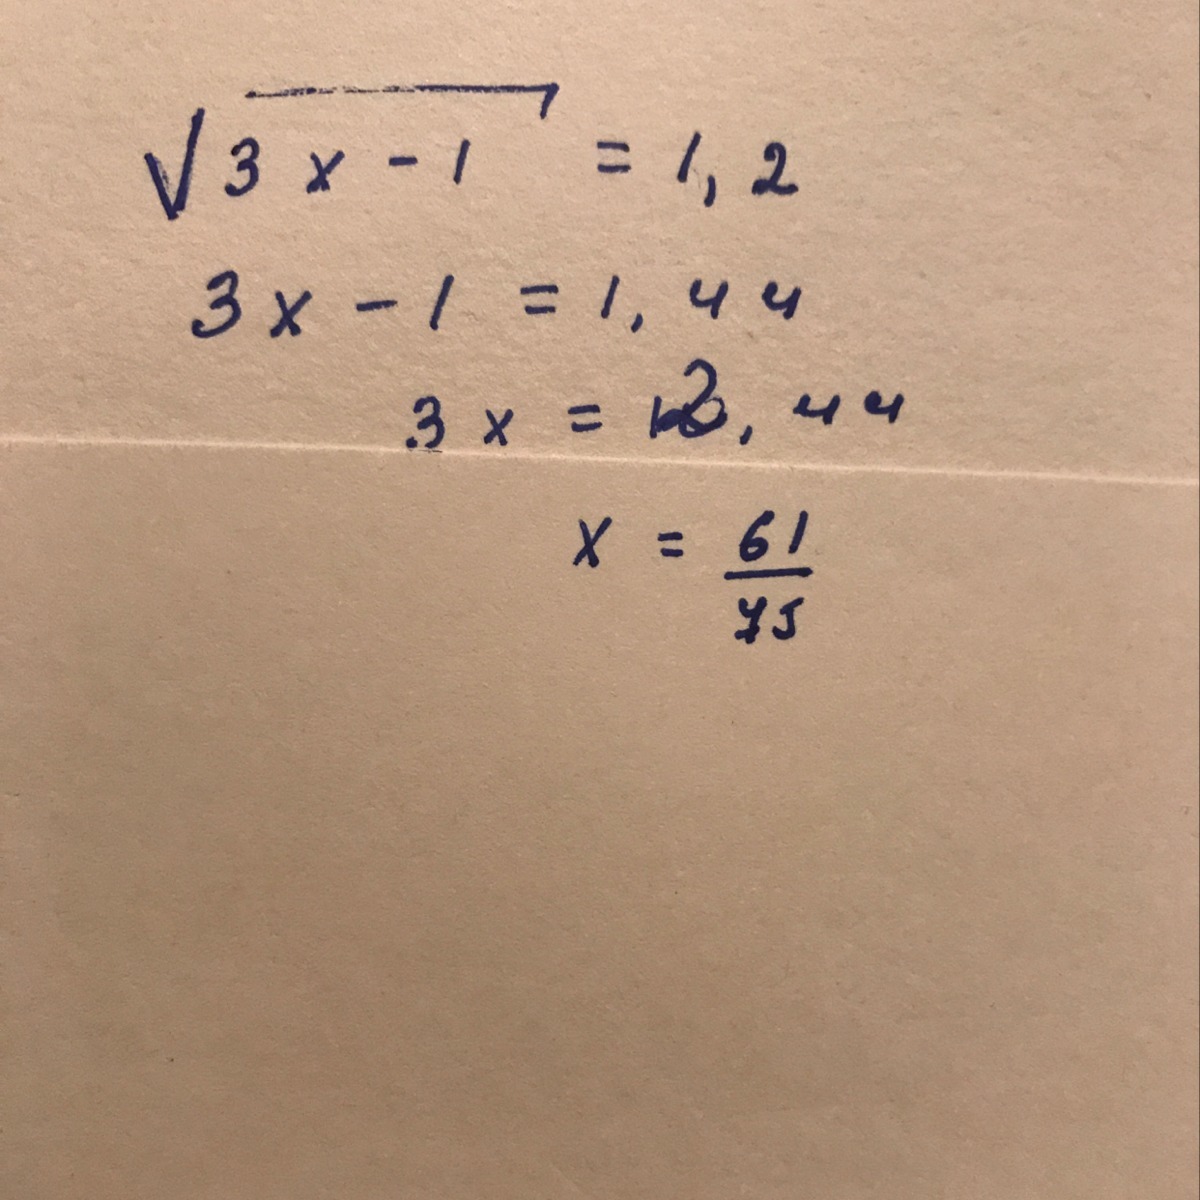 √3x - 1 = 1,2
3x - 1 = 1,44
3x = 2,44
x = 61/75